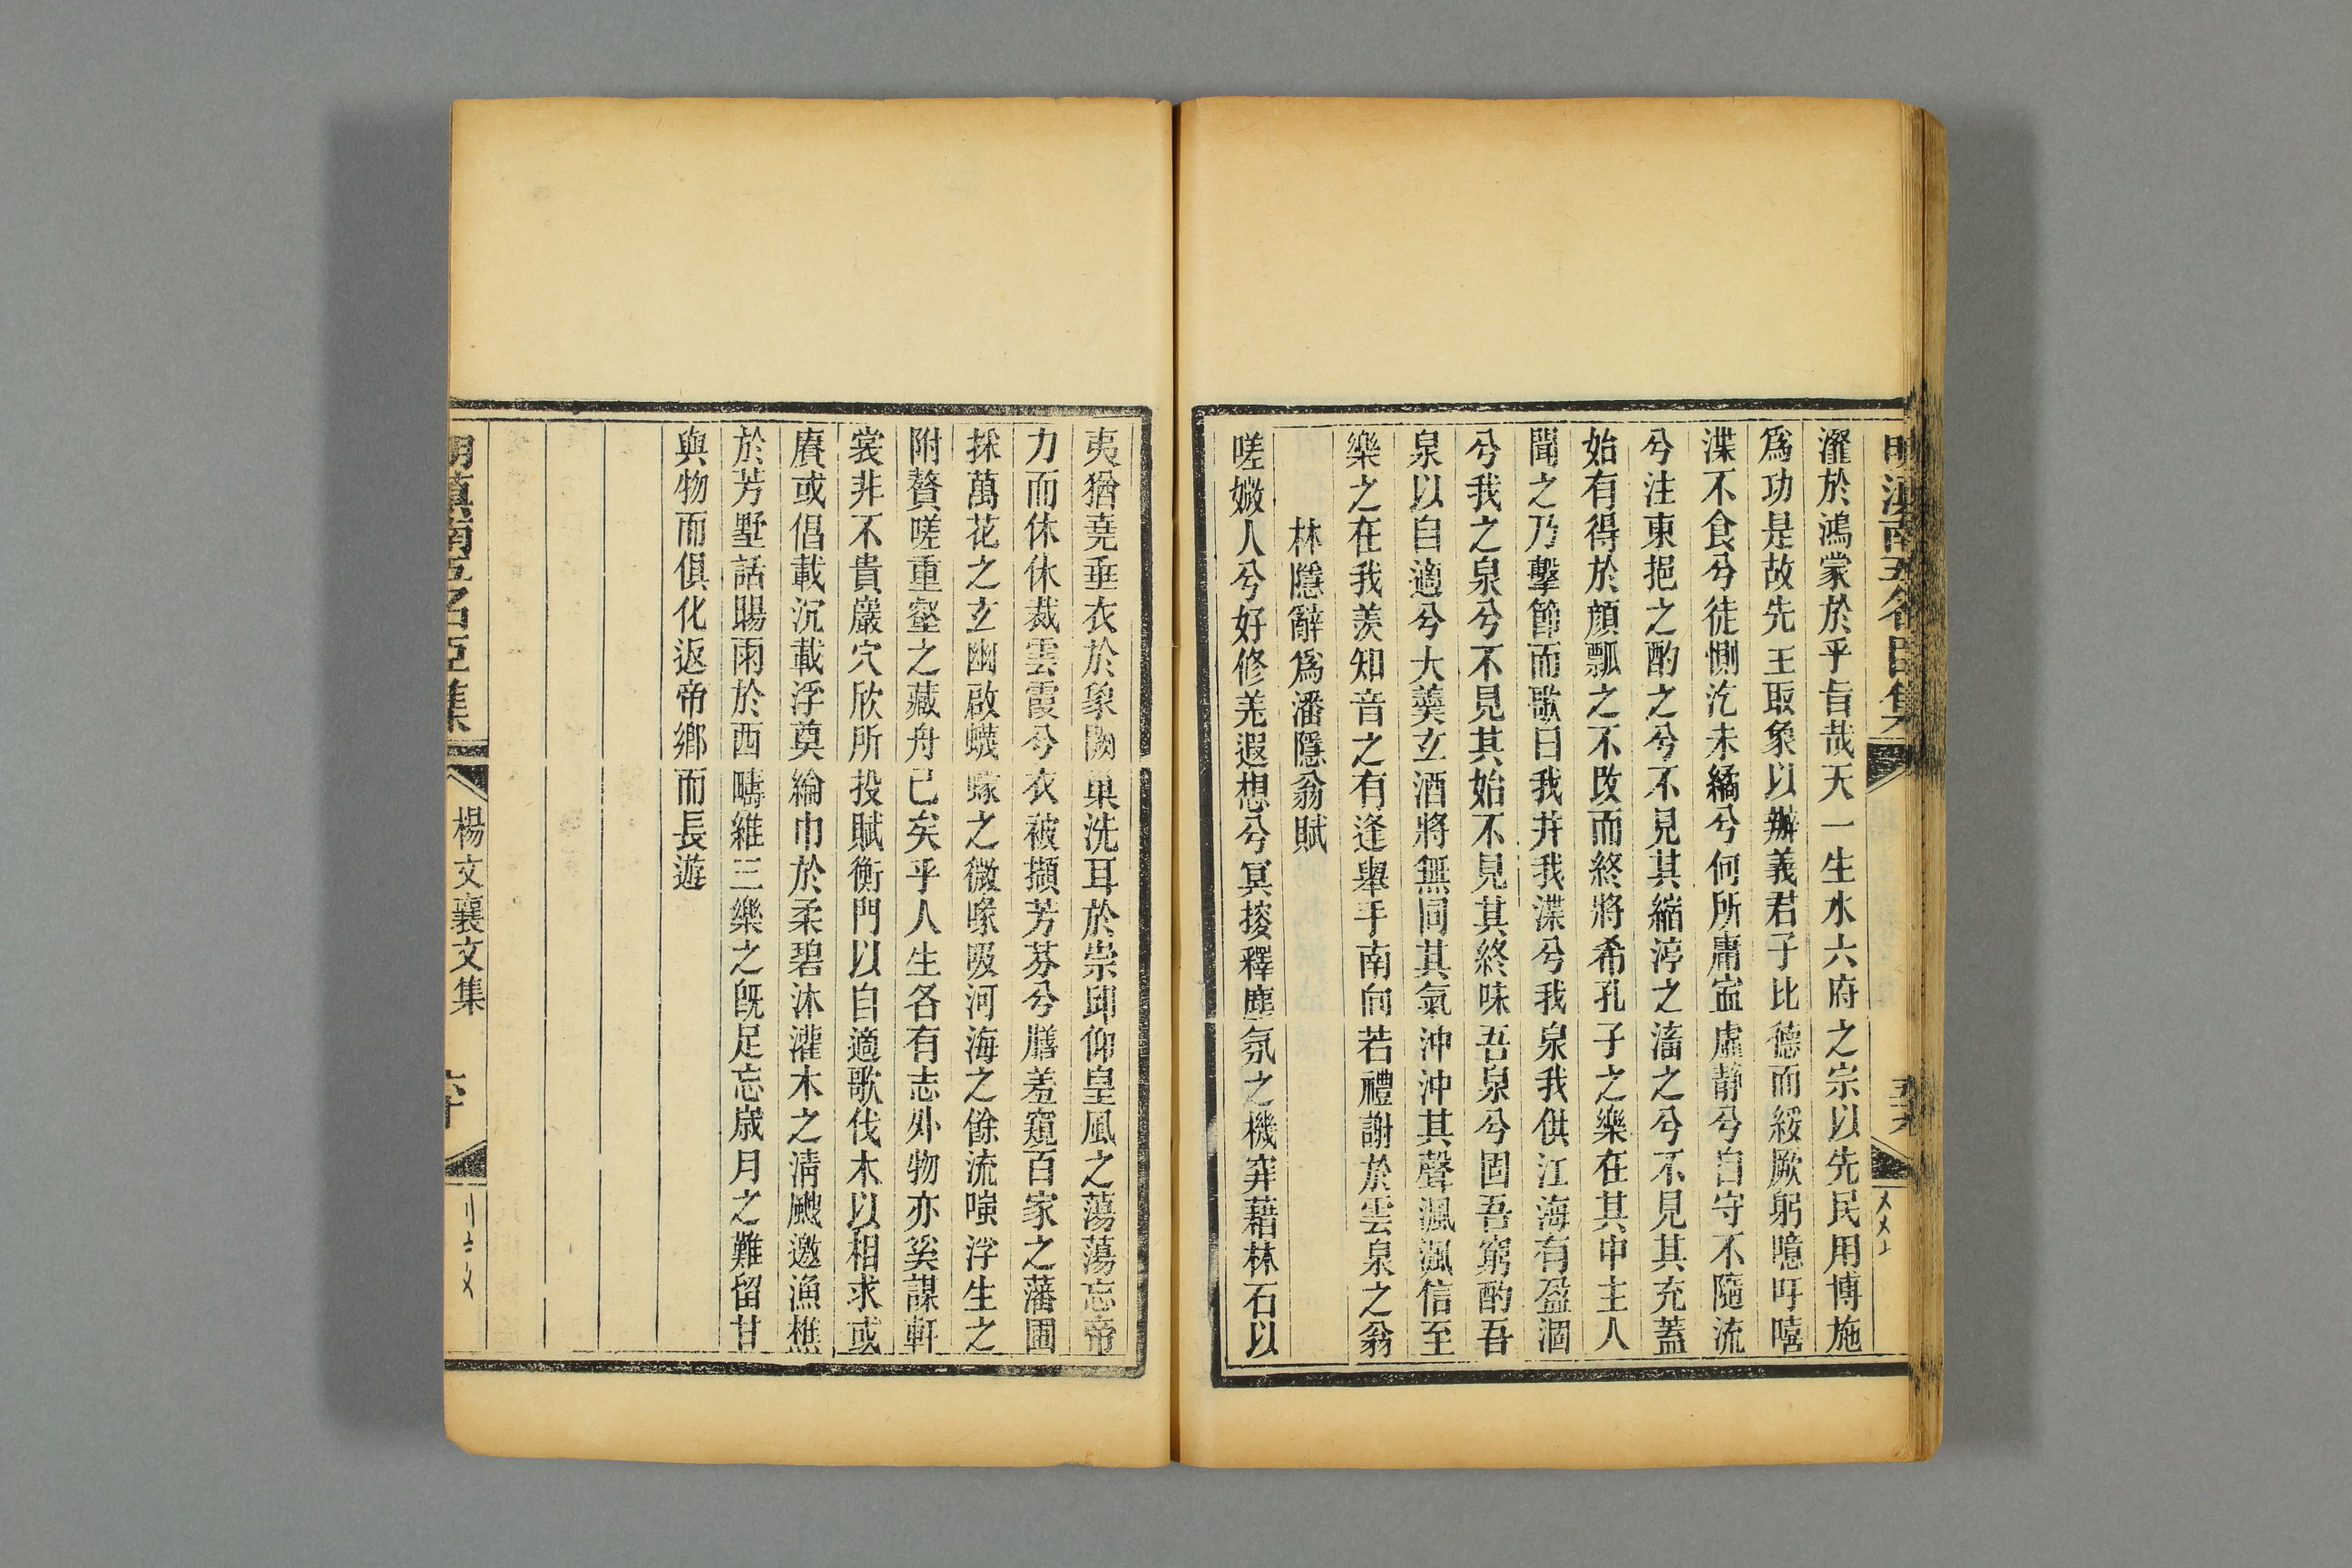 明滇南五名臣集
濯於鴻蒙於乎旨哉天一生水六府之宗以先民用博施
爲功是故先王取象以辦義君子比德而綏厥躬噫吁嘻
渫不食兮徒惻汔未繘兮何所庸寍虛靜兮自守不隨流
兮注東挹之酌之兮不見其縮渟之滀之兮不見其充蓋
始有得於顔瓢之不改而終將希孔子之樂在其中主人
聞之乃擊節而歌曰我井我渫兮我泉我供江海有盈涸
兮我之泉兮不見其始不見其終味吾泉兮固吾窮酌吾
泉以自適兮大羹玄酒將無同其氣沖沖其聲渢渢信至
樂之在我羨知音之有逢舉手南向若禮謝於雲泉之翁
林隱辭爲潘隱翁賦
嗟媺人兮好修羌遐想兮冥搜釋塵氛之機穽藉林石以
夷猶堯垂衣於象闕巢洗耳於崇邱仰皇風之蕩蕩忘帝
力而休休裁雲霞兮衣被擷芳芬兮膳羞窺百家之藩圃
採萬花之玄幽啟蠛蠓之微喙吸河海之餘流嗤浮生之
附贅嗟重壑之藏舟已矣乎人生各有志外物亦奚謀軒
裳非不貴巖穴欣所投賦衡門以自適歌伐木以相求或
賡或倡載沉載浮奠綸巾於柔碧沐灌木之清飀邀漁樵
於芳墅話賜雨於西疇維三樂之旣足忘歲月之難留甘
與物而俱化返帝鄉而長遊
明滇南五名臣集
楊文襄文集
六十